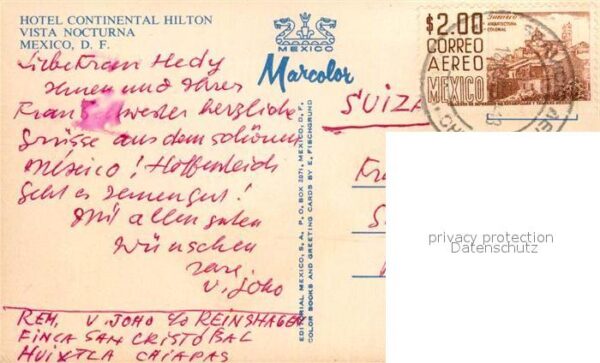 HOTEL CONTINENTAL HILTON
VISTA NOCTURNA
MEXICO, D. F.
MEXICO
Marcolor
$2.00
CORREO
AEREO
MEXICO
ARQUITECTURA
COLONIAL
Liebe Frau Hedy
Ihnen und Ihrer
Frau Schwester herzliche
Grüsse aus dem schönen
México! Hoffentlich
geht es Ihnen gut!
Mit allen guten
Wünschen
V. Joho
SUIZA
EDITORIAL MEXICO, S. A. P. O. BOX 2071, MEXICO, D. F.
COLOR BOOKS AND GREETING CARDS BY E. FISCHGRUND
privacy protection
Datenschutz
REM. V. JOHO c/o REINSHAGEN
FINCA SAN CRISTOBAL
HUIXTLA CHIAPAS